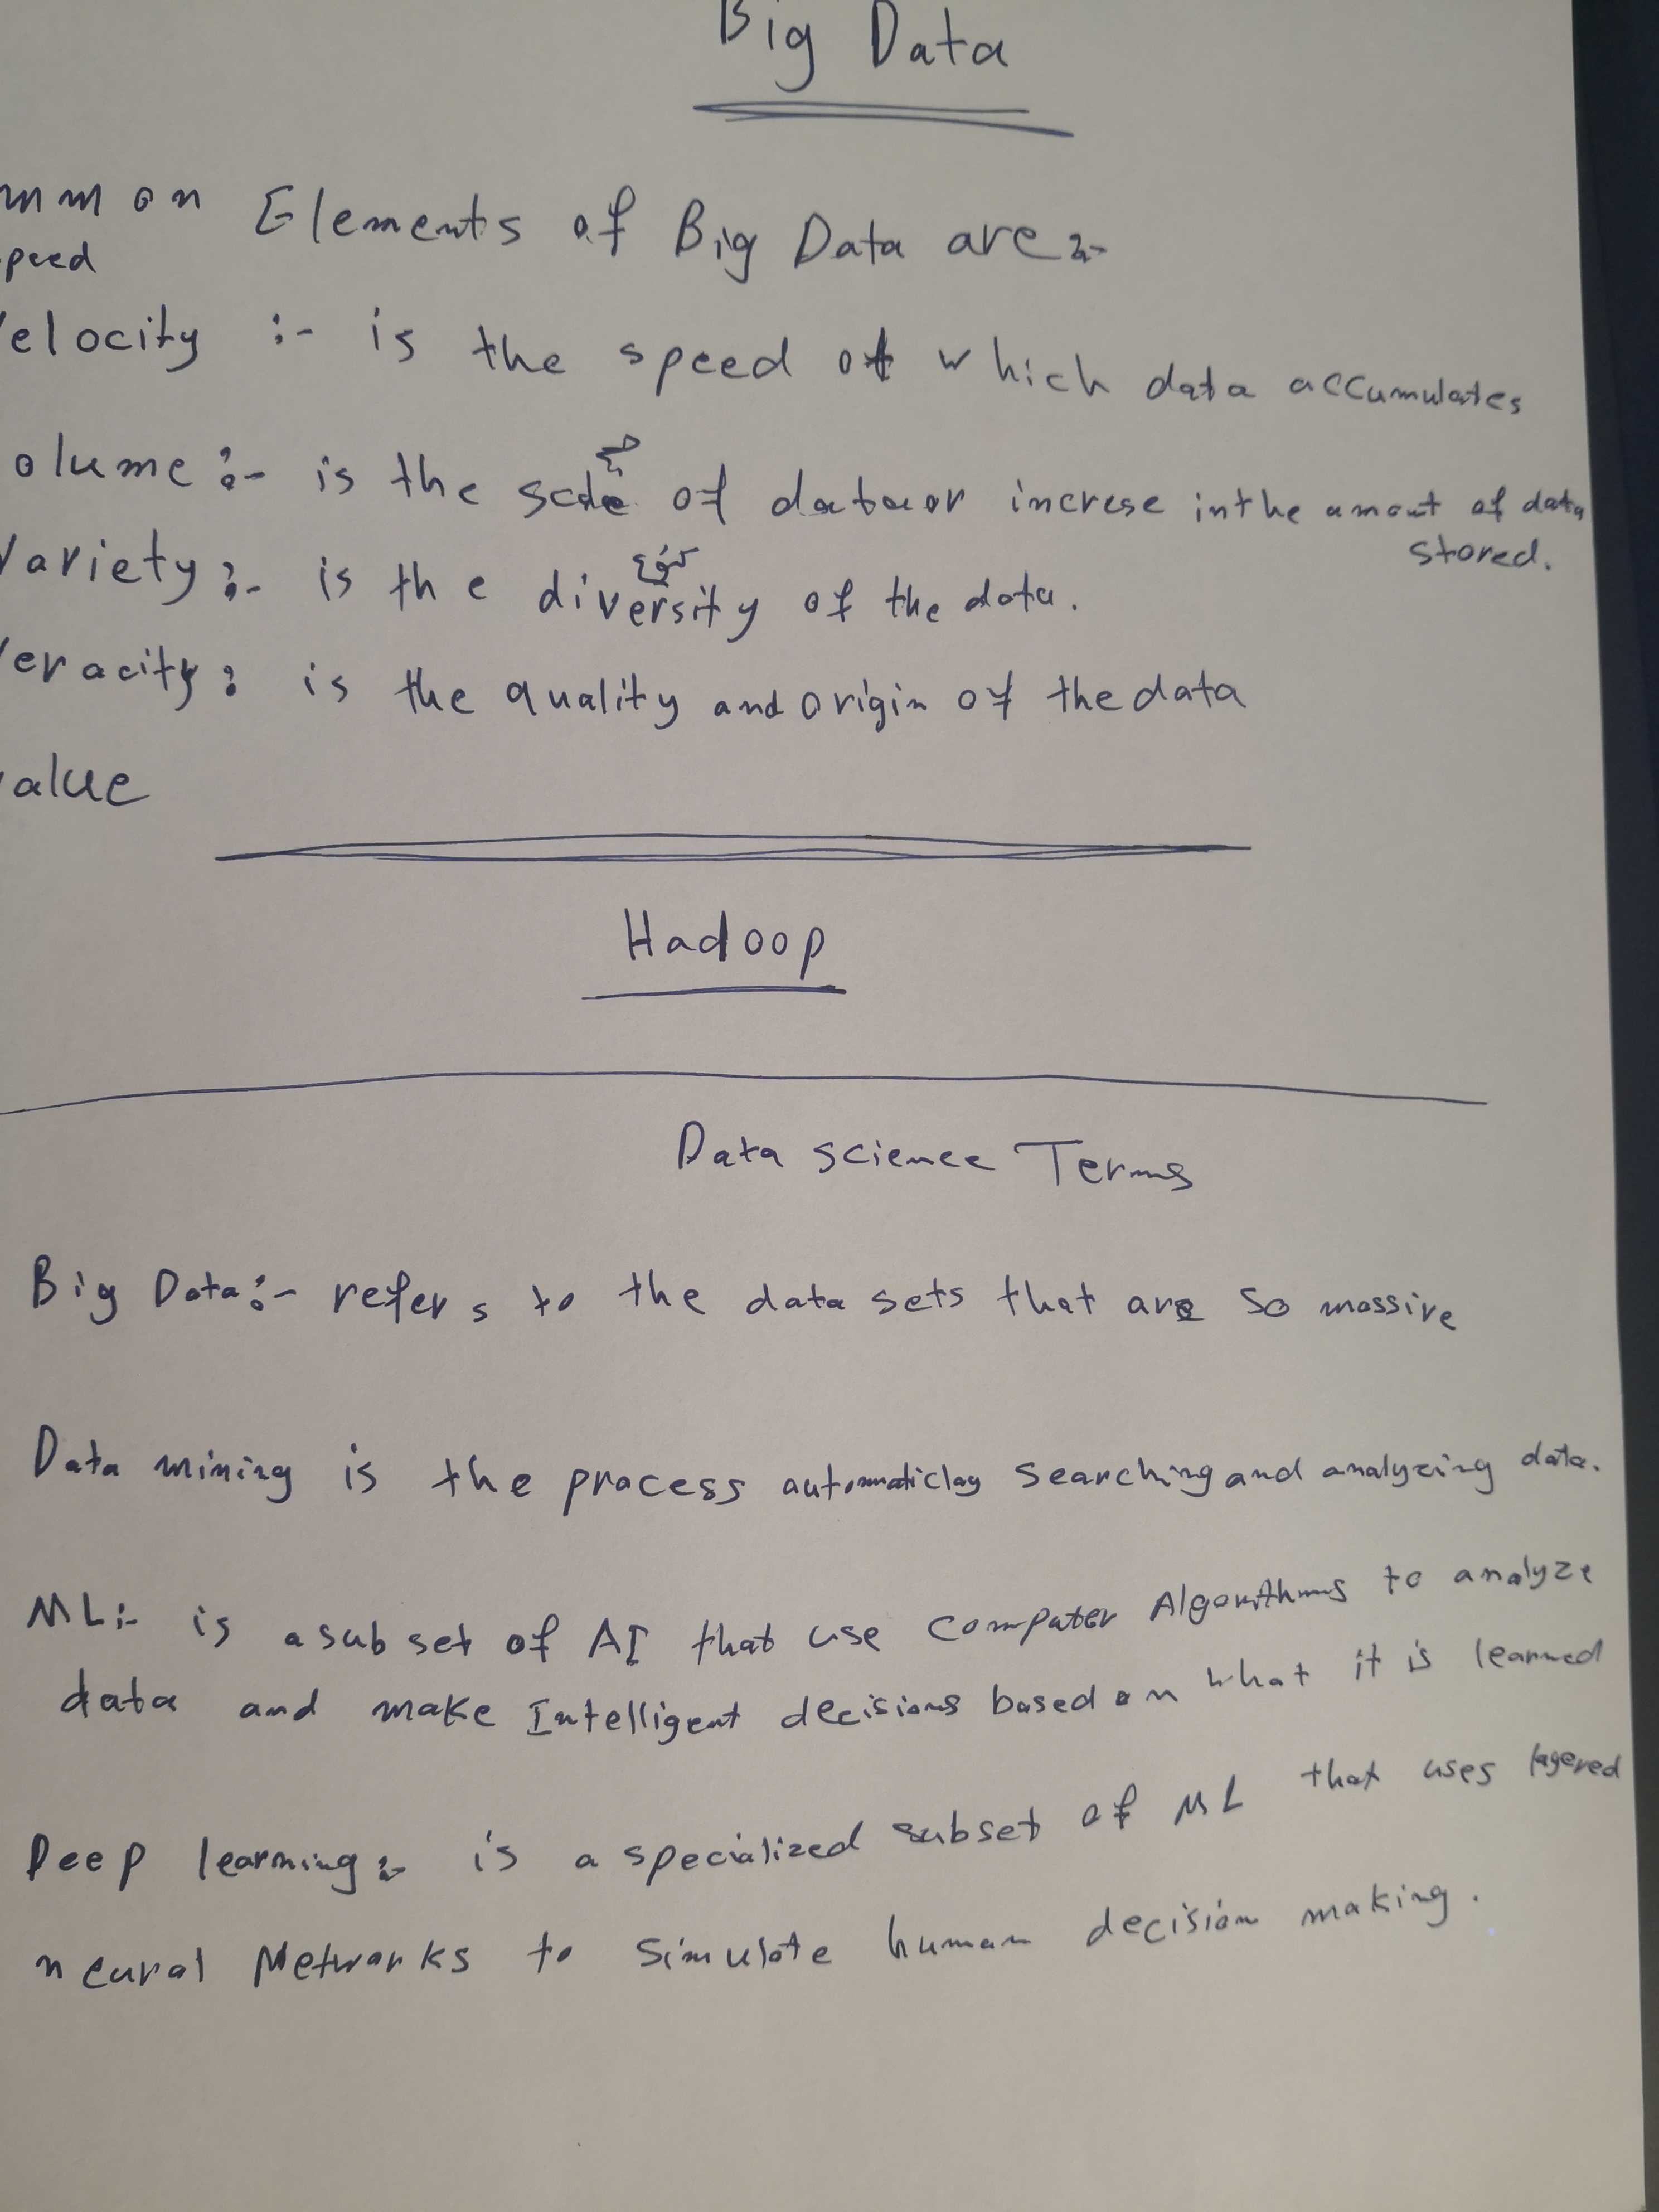 Big Data
mmon Elements of Big Data are:-
peed
elocity :- is the speed of which data accumulates
olume :- is the scale of data or increse in the amout of data
stored.
تنوع
Variety :- is the diversity of the data.
eracity : is the quality and origin of the data
alue
Hadoop
Data science Terms
Big Data :- refers to the data sets that are so massive
Data mining is the process automaticlay searching and analyzing data.
ML :- is a subset of AI that use computer Algorithms to analyze
data and make Intelligent decisions based on what it is learned
Deep learning :- is a specialized subset of ML that uses layered
neural Networks to simulate human decision making.